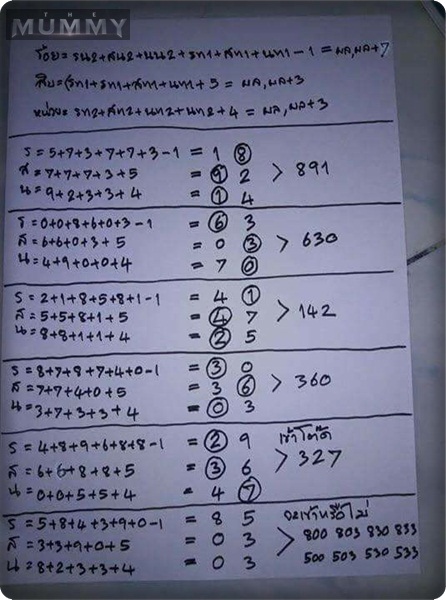 THE
MUMMY
ร้อย = รน2+สน2+นน2+รท1+สท1+นท1-1 = ผล,ผล+7
สิบ = รท1+รท1+สท1+นท1+5 = ผล,ผล+3
หน่วย = รท2+สท2+นท2+นท2+4 = ผล,ผล+3
ร = 5+7+3+7+7+3-1 = 1 8
ส = 7+7+7+3+5 = 9 2 > 891
น = 9+2+3+3+4 = 1 4
ร = 0+0+8+6+0+3-1 = 6 3
ส = 6+6+0+3+5 = 0 3 > 630
น = 4+9+0+0+4 = 7 0
ร = 2+1+8+5+8+1-1 = 4 1
ส = 5+5+8+1+5 = 4 7 > 142
น = 8+8+1+1+4 = 2 5
ร = 8+7+8+7+4+0-1 = 3 0
ส = 7+7+4+0+5 = 3 6 > 360
น = 3+7+3+3+4 = 0 3
ร = 4+8+9+6+8+8-1 = 2 9 เข้าโต๊ด
ส = 6+6+8+8+5 = 3 6 > 327
น = 0+0+5+5+4 = 4 7
ร = 5+8+4+3+9+0-1 = 8 5 จะเข้าหรือไม่
ส = 3+3+9+0+5 = 0 3 > 800 803 830 833
น = 8+2+3+3+4 = 0 3 500 503 530 533